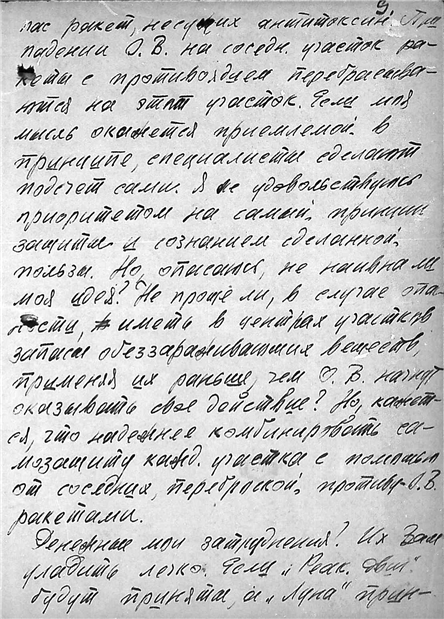 9.
пас ракет, несущих антитоксин. При
падении О.В. на соседн. участок ра-
кеты с противоядием перебрасыва-
ются на этот участок. Если моя
мысль окажется приемлемой в
принципе, специалисты сделают
подсчет сами. Я же удовольствуюсь
приоритетом на самый принцип
защиты и сознанием сделанной
пользы. Но, опасаюсь, не наивна ли
моя идея? Не проще ли, в случае опа-
ности, иметь в центрах участков
запасы обеззараживающих веществ,
применяя их раньше, чем О.В. начнут
оказывать свое действие? Но, кажет-
ся, что надежнее комбинировать са-
мозащиту кажд. участка с помощью
от соседних, переброской противу-О.В.
ракетами.
Денежные мои затруднения? Их Вам
уладить легко. Если „Реак. двиг"
будут приняты, а „Луна" прин-